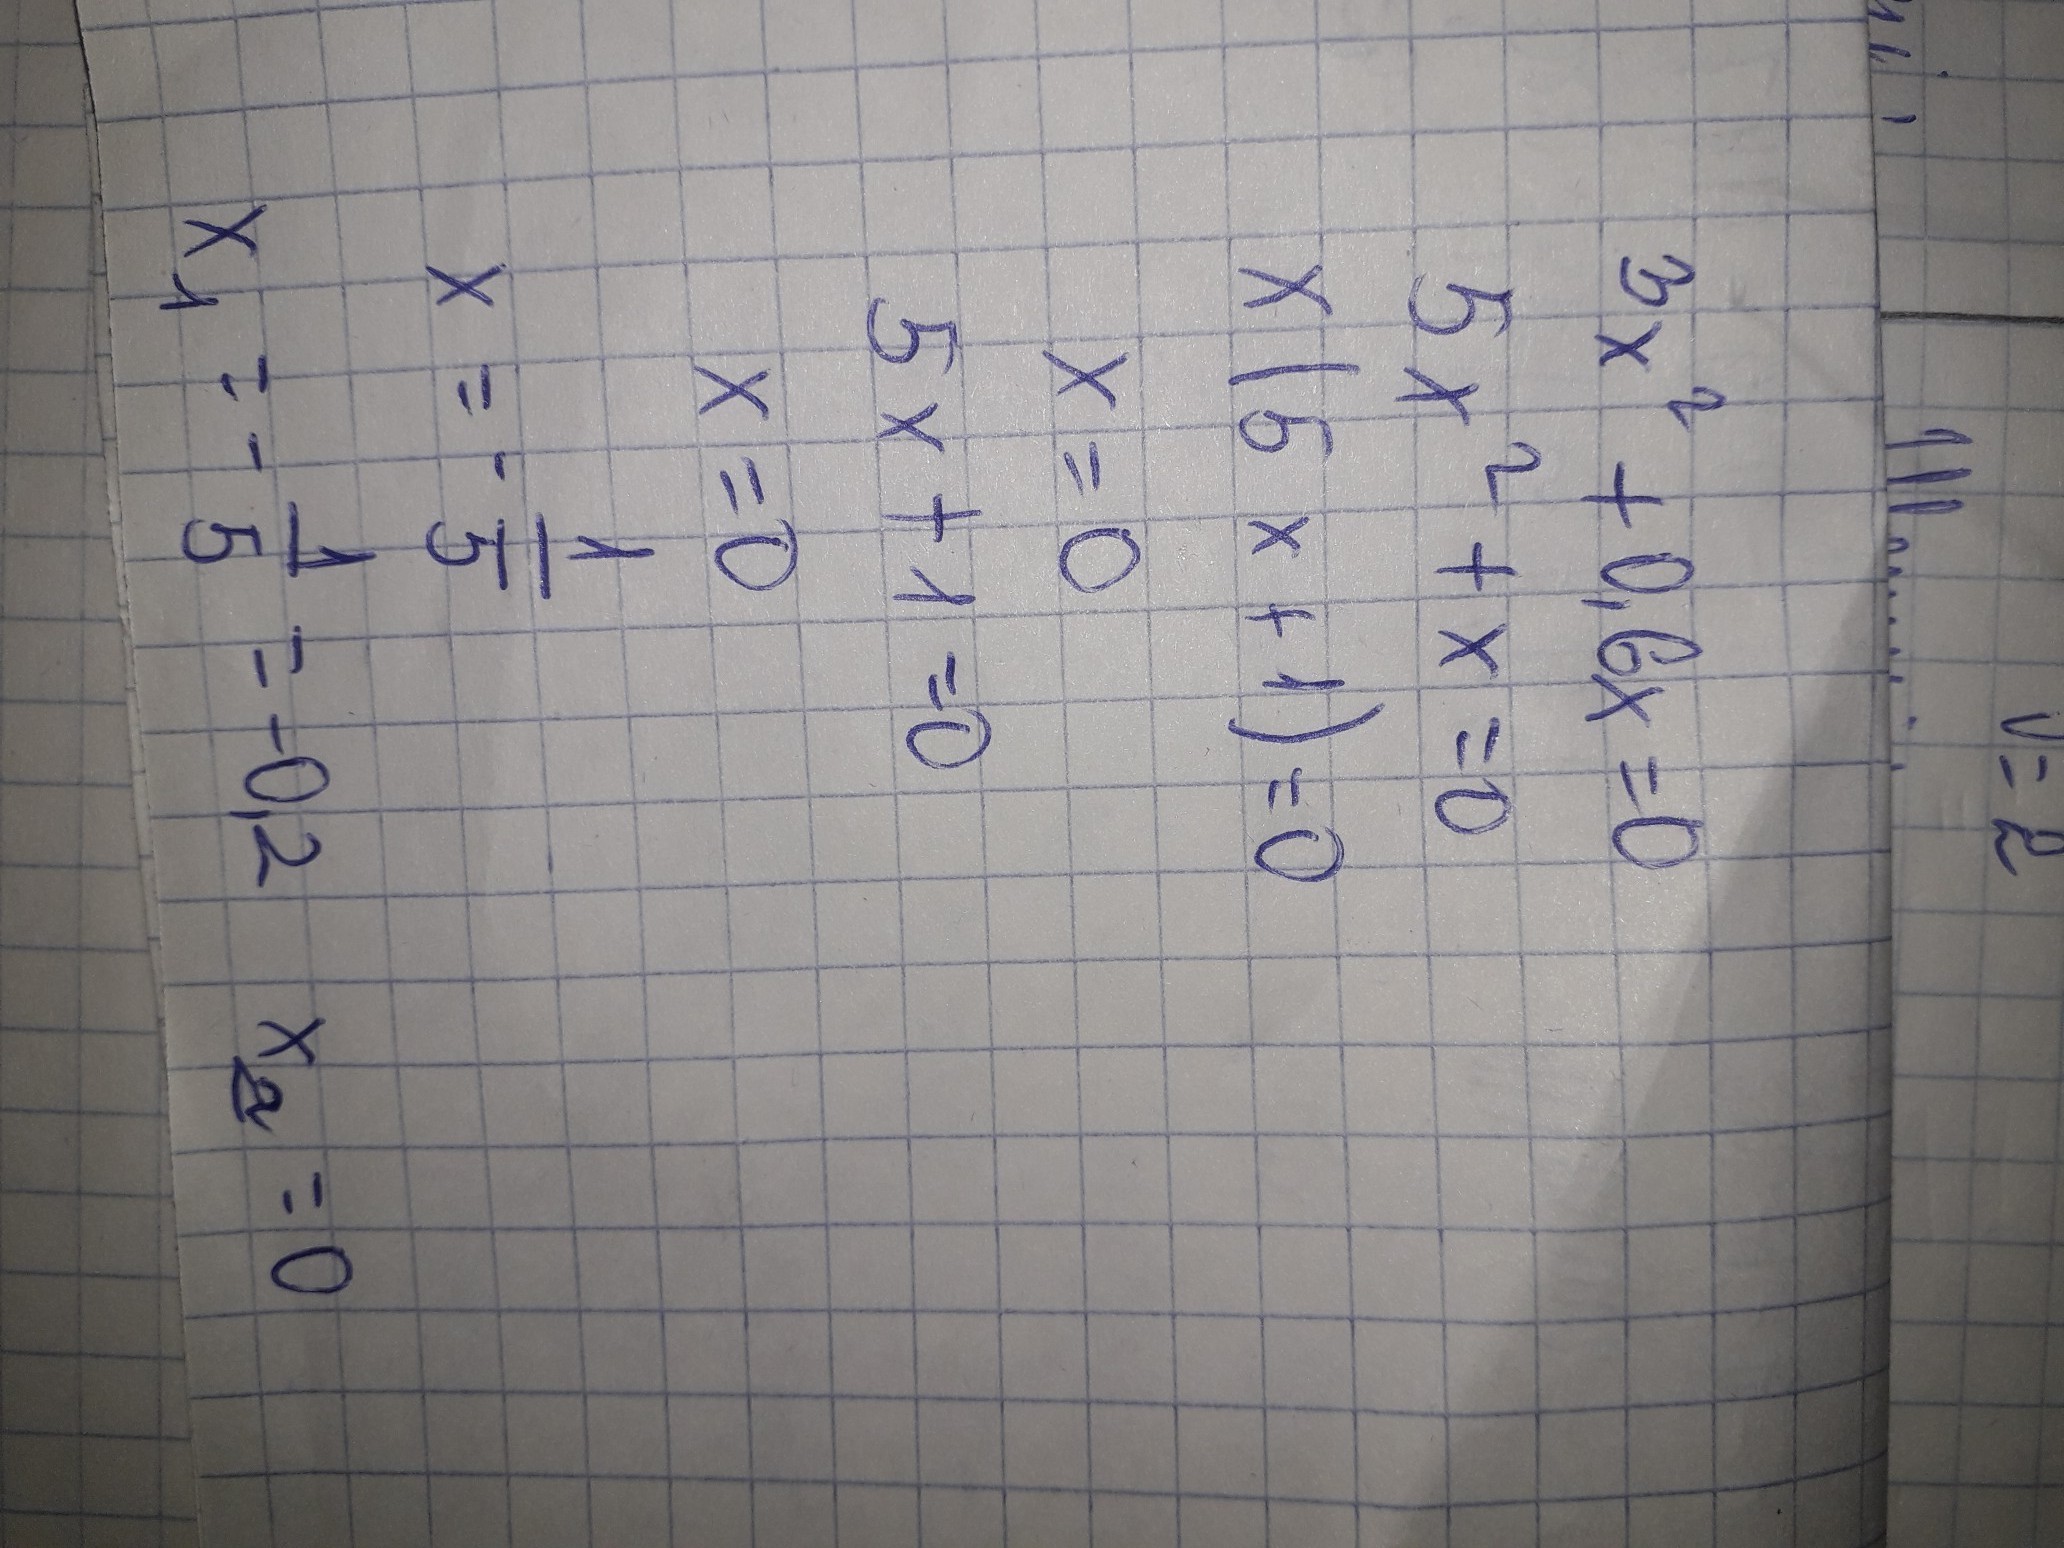 3x² + 0,6x = 0
5x² + x = 0
x(5x + 1) = 0
x = 0
5x + 1 = 0
x = 0
x = - 1/5
x₁ = - 1/5 = -0,2 x₂ = 0
v = 2